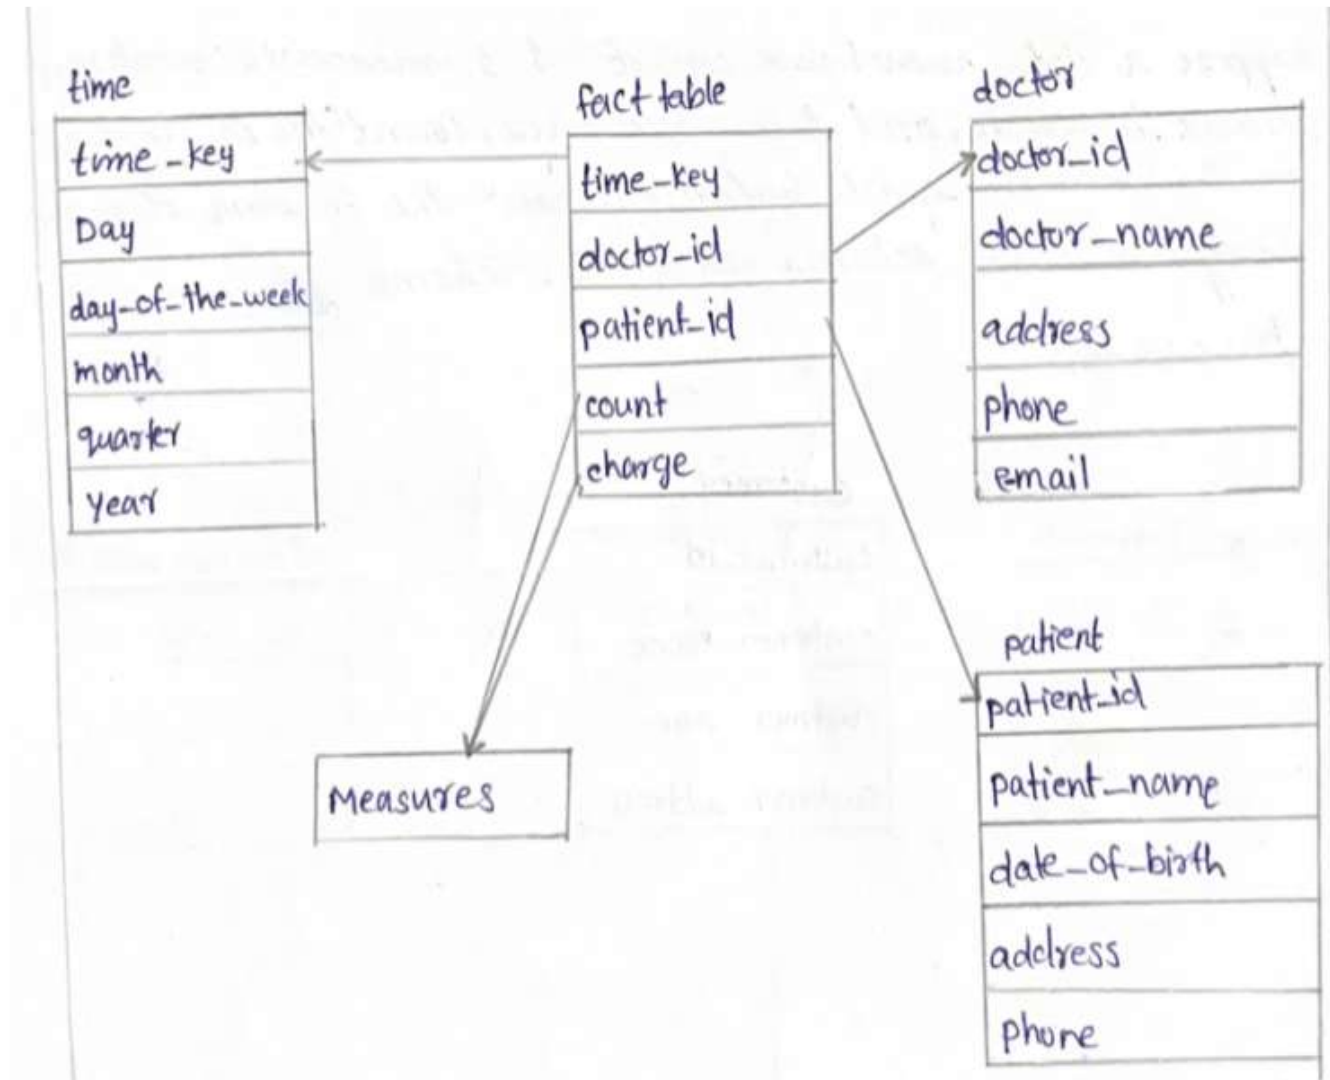 time
time-key
Day
day-of-the-week
month
quarter
year
fact table
time-key
doctor-id
patient-id
count
charge
doctor
doctor-id
doctor-name
address
phone
email
Measures
patient
patient-id
patient-name
date-of-birth
address
phone